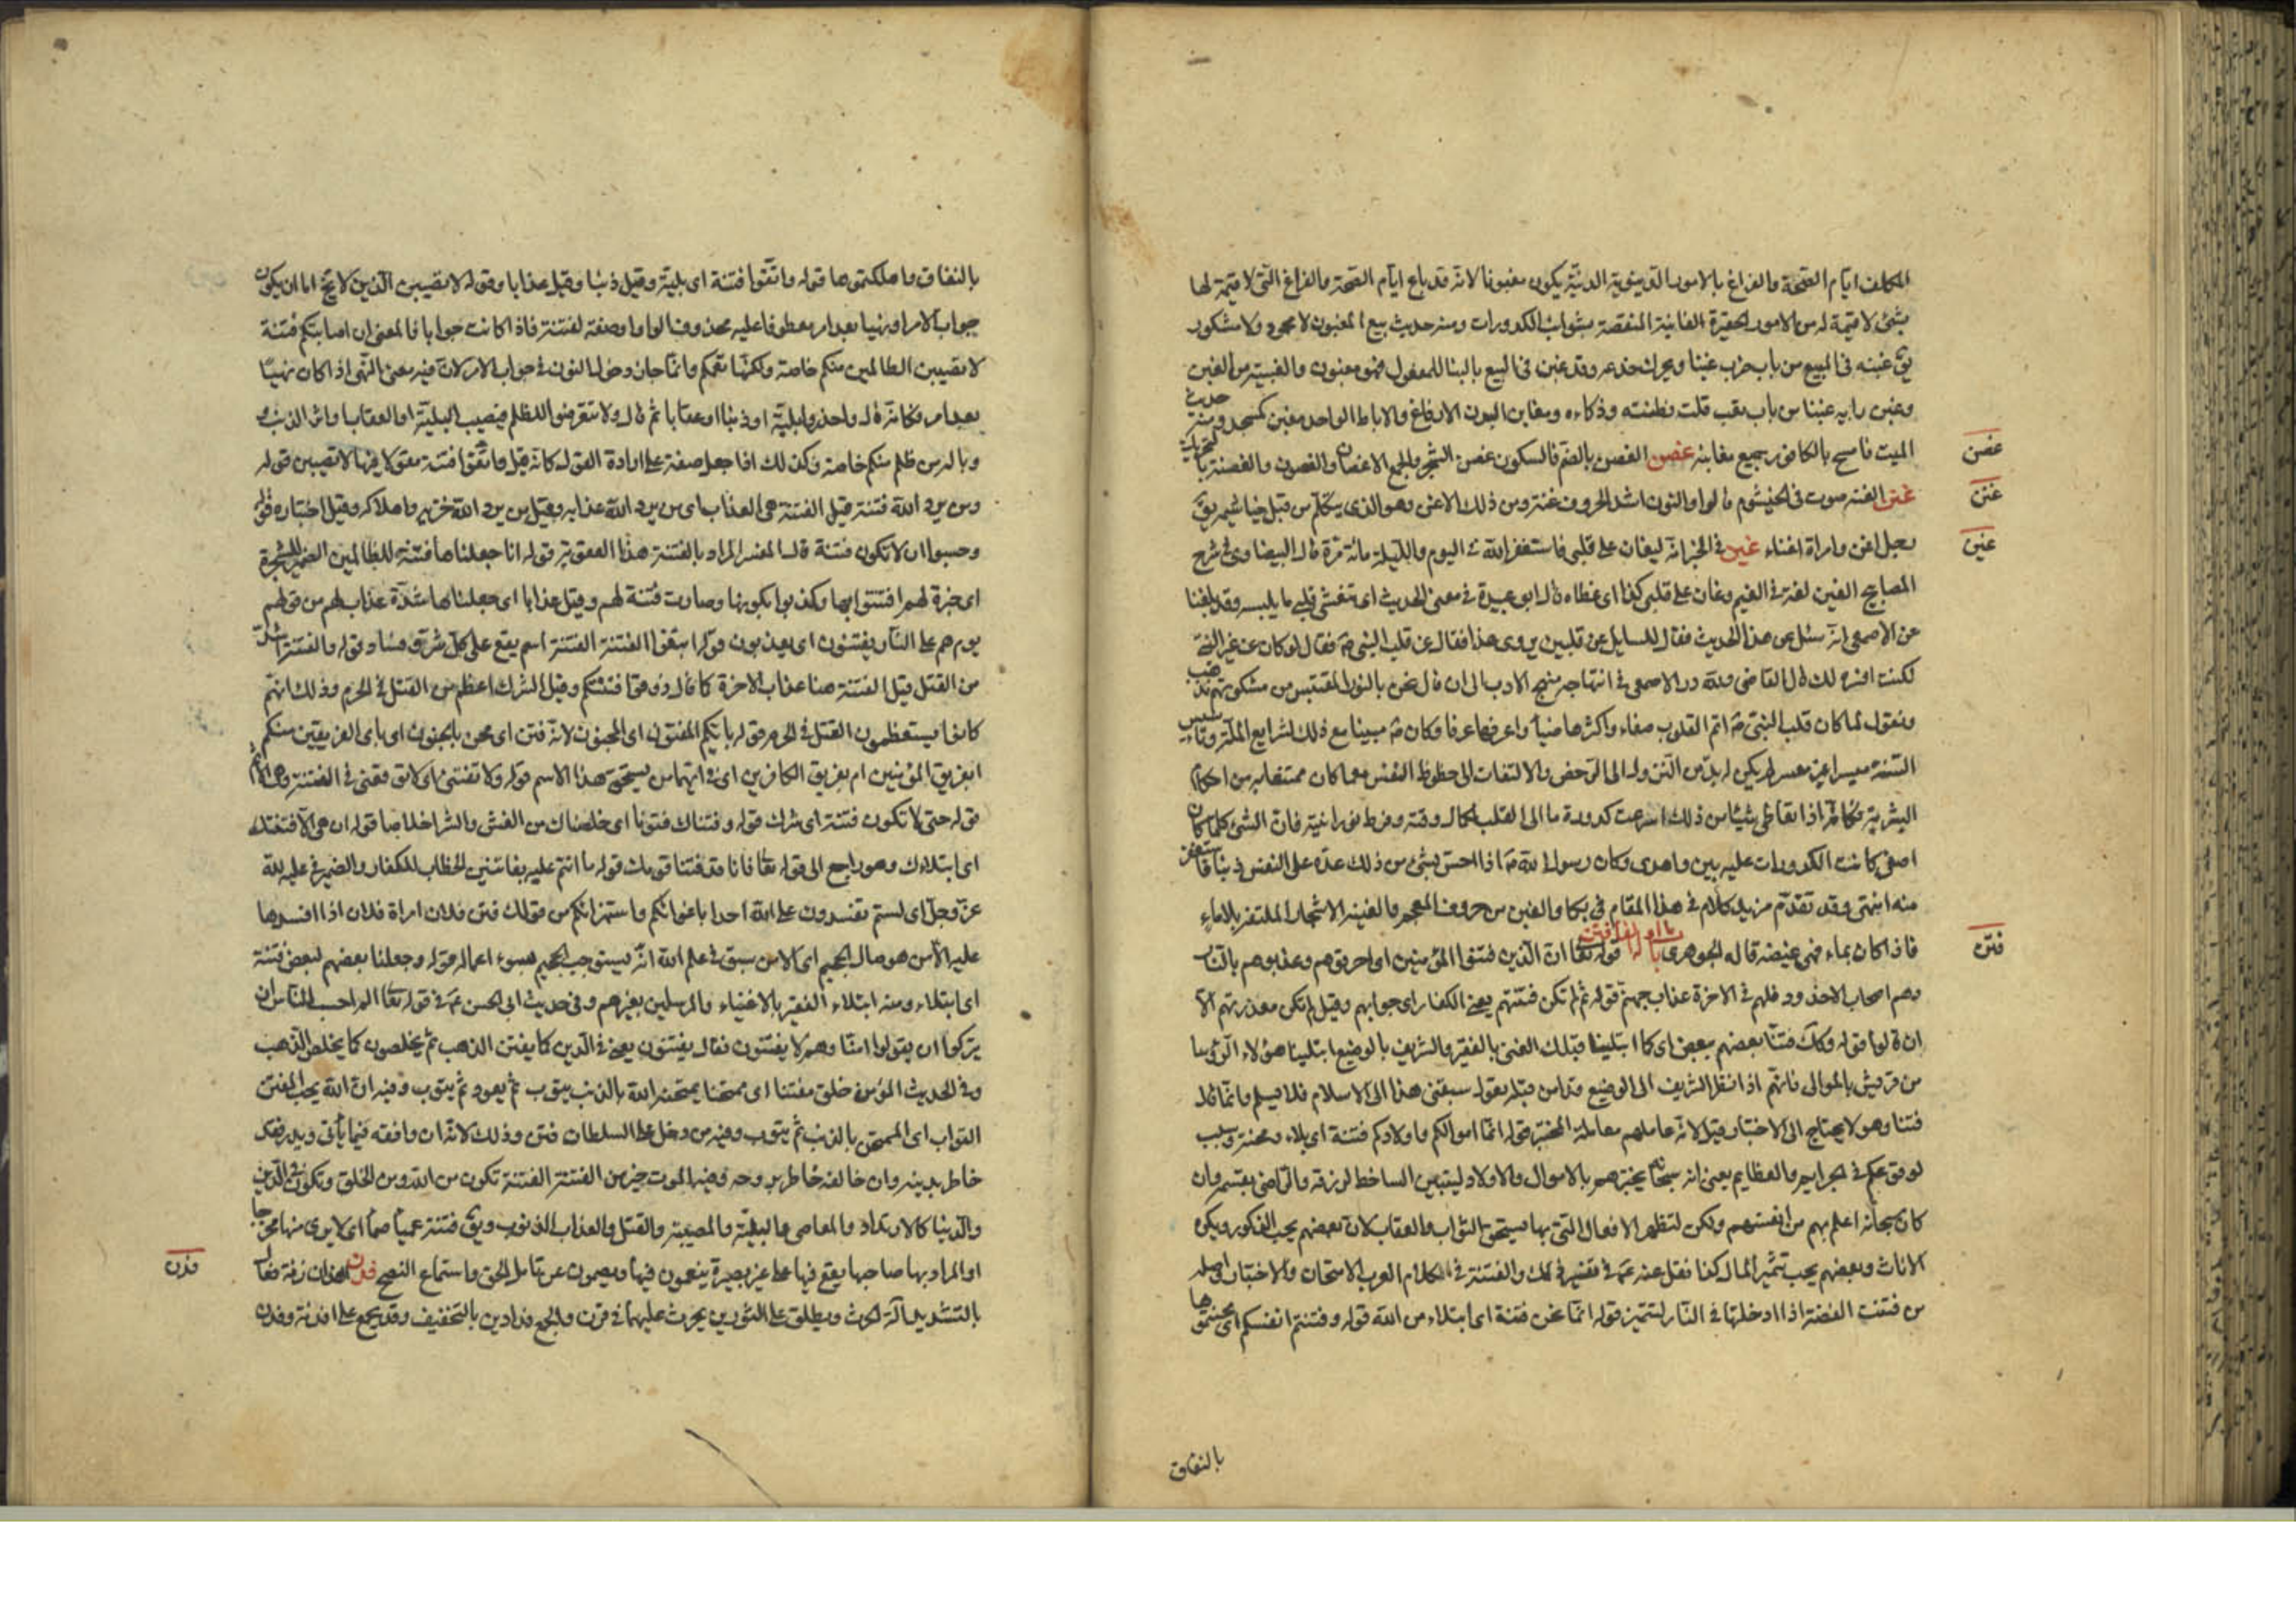 المكلف ايّام الصّحة والفراغ بالامور الدنيوية الدنيّة يكون مغبونا لانه قد باع ايّام الصّحة والفراغ الّتى لا قيمة لها
بشئ لا قيمة له من الامور الحقيرة الفانية المنغصة بشوائب الكدورات ومنه حديث بيع المغبون لا محمود ولا مشكور
يقّ غبنه فى البيع من باب ضرب غبنا ويحرك خدعه وقد غبن فى البيع بالبنا للمفعول فهو مغبون والغبينة من الغبن
وغبن رايه غبنا من باب تعب قلت فطنته وذكاءه ومغابن البدن الارفاغ والاباط الواحد مغبن كمسجد ومنه حديث
الميت فامسح بالكافور جميع مغابنه غصن الغصن بالضم فالسكون غصن الشجر والجمع الاغصان والغصون والغصنة
غصن
غنن الغنه صوت فى الخيشوم قالوا والنون اشد الحروف غنة ومن ذلك الاغن وهو الذى يتكلّم من قبل خياشيمه يقّ
غنن
رجل اغن وامراة اغناء غين فى الخبر انه ليغان على قلبى فاستغفر الله فى اليوم والليلة مائة مرّة قال البيضاوى فى شرح
غين
المصابيح الغين لغة فى الغيم وغان على قلبى كذا اى غطاه قال ابو عبيدة فى معنى الحديث اى تغشى قلبى ما يلبسه وقد بلغنا
عن الاصمعى انه سئل عن هذا الحديث فقال للسايل عن قلب من يروى هذا فقال عن قلب النبى صّ فقال لو كان عن غير النبىّ
لكنت افسره لك قال القاضى ولله در الاصمعى فى انتهاجه منهج الادب الى ان قال نحن بالنور المقتبس من مشكوتهم نذهب
ونقول لما كان قلب النبى صّ اتم القلوب صفاء واكثرها ضياء واعرفها عرفا وكان صّ مبينا مع ذلك لشرايع الملّة وتاسيس
السّنة ميسرا غير معسر لم يكن له بدّ من النزول الى الرخص والالتفات الى حظوظ النفس مع ما كان ممتحنا به من احكام
البشرية فكانّه اذا تعاطى شيئا من ذلك اسرعت كدورة ما الى القلب لكمال رقته وفرط نورانيته فانّ الشئ كلما كان
اصفى كانت الكدورات عليه ابين واهدى وكان رسول الله صّ اذا احسّ بشئ من ذلك عدّه على النفس ذنبا فاستغفر
منه انتهى وقد تقدّم مزيد كلام فى هذا المقام فى بكا والغين من حروف المعجم والغينه الاشجار الملتفة بلا ماء
فاذا كان بماء فهى غيضه قاله الجوهرى باب ما اوله الفا فتن قوله تعا انّ الّذين فتنوا المؤمنين اى احرقوهم وعذبوهم بالنّار
فتن
وهم اصحاب الاخدود فلهم فى الاخرة عذاب جهنّم قوله ثم لم تكن فتنتهم يعنى الكفار اى جوابهم وقيل لم تكن معذرتهم الّا
ان قالوا قوله وكذلك فتنّا بعضهم ببعض اى كما ابتلينا قبلك الغنى بالفقير والشريف بالوضيع ابتلينا هؤلاء الرؤسا
من قريش بالموالى فانهّم اذا نظر الشريف الى الوضيع قد امن قبله يقول سبقنى هذا الى الاسلام فلا يسلم وانّما قال
فتنا وهو لا يحتاج الى الاختبار قيل لانّه عاملهم معاملة المختبر قوله انّما اموالكم واولادكم فتنة اى بلاء ومحنة وسبب
لوقوعكم فى الجرايم والعظايم يعنى انه سبحانه يختبرهم بالاموال والاولاد ليتبين الساخط لرزقه والرّاضى بقسمه وان
كان سبحانه اعلم بهم من انفسهم ولكن لتظهر الافعال التى بها يستحق الثواب والعقاب لانّ بعضهم يحب الذكور ويكره
الاناث وبعضهم يحب تثمير المال كذا نقل عنه عّ فى تفسير ذلك والفتنة فى كلام العرب الامتحان والاختبار واصله
من فتنت الفضة اذا ادخلتها فى النّار لتتميز قوله انّما نحن فتنة اى ابتلاء من الله قوله وفتنتم انفسكم اى محنتموها
بالنفاق
بالنفاق واهلكتموها قوله واتّقوا فتنة اى بليّة وقيل ذنبا وقيل عذابا وقوله لا تصيبن الّذين لا يخ اما ان يكون
جواب الامر او نهيا بعد امر معطوفا عليه بحذف الواو او صفة لفتنة فاذا كانت جوابا فالمعنى ان اصابتكم فتنة
لا تصيبن الظالمين منكم خاصة ولكنّها تعمكم وانّما جاز دخول النون فى جواب الامر لانّ فيه معنى النّهى اذا كان نهيا
بعد امر فكانه قال واحذروا بليّة او ذنبا او عقابا ثم قال ولا تتعرضوا للظلم فيصيب البليّة او العقاب او اثر الذنب
وباله من ظلم منكم خاصة وكذلك اذا جعل صفة على ارادة القول كانه قيل واتّقوا فتنة مقولا فيها لا تصيبن قوله
ومن يرد الله فتنته قيل الفتنة هى العذاب اى من يرد الله عذابه وقيل من يرد الله خزيه واهلاكه وقيل اختباره قوله
وحسبوا ان لا تكون فتنة قال المفسر المراد بالفتنة هنا العقوبة قوله انا جعلناها فتنة للظالمين الضمير للشجرة
اى خبرة لهم افتتنوا بها وكذبوا بكونها وصارت فتنة لهم وقيل عذابا اى جعلناها شدّة عذاب لهم من قولهم
يوم هم على النّار يفتنون اى يعذبون قوله ابتغوا الفتنة الفتنة اسم يقع على كلّ شرّ وفساد قوله والفتنة اشدّ
من القتل قيل الفتنة هنا عذاب الاخرة كما قال ذوقوا فتنتكم وقيل الشرك اعظم من القتل فى الحرم وذلك انهّم
كانوا يستعظمون القتل فى الحرم قوله بايّكم المفتون اى المجنون لانّه فتن اى محن بالجنون اى باى الفريقين منكم
ابفريق المؤمنين ام بفريق الكافرين اى فى ايهما من يستحق هذا الاسم قوله ولا تفتنى اى لا توقعنى فى الفتنة وهى الاثم
قوله حتى لا تكون فتنة اى شرك قوله وفتناك فتونا اى خلصناك من الغش والشر اخلاصا قوله ان هى الّا فتنتك
اى ابتلاءك وهو راجع الى قوله تعا فانا قد فتنّا قومك قوله ما انتم عليه بفاتنين الخطاب للكفار والضمير فى عليه لله
عزّ وجلّ اى لستم تفسدون على الله احدا باغوائكم واستهزائكم من قولك فتن فلان امراة فلان اذا افسدها
عليه الّا من هو صال الجحيم اى الّا من سبق فى علم الله انّه يستوجب الجحيم بسوء اعماله قوله وجعلنا بعضهم لبعض فتنة
اى ابتلاء ومنه ابتلاء الفقير بالاغنياء والمرسلين بغيرهم وفى حديث ابى الحسن عّ فى قوله تعا الم احسب الناس ان
يتركوا ان يقولوا امنّا وهم لا يفتنون فقال يفتنون يعنى فى الدّين كما يفتن الذهب ثم يخلصون كما يخلص الذهب
وفى الحديث المؤمن خلق مفتنا اى ممتحنا يمتحنه الله بالذنب يتوب ثم يعود ثم يتوب وفيه انّ الله يحب المفتن
التواب اى الممتحن بالذنب ثم يتوب وفيه من دخل على السلطان فتن وذلك لانّه ان وافقه فيما ياتى ويدر فقد
خاطر بدينه وان خالفه خاطر بروحه وفيه الموت خير من الفتنة الفتنة تكون من الله ومن الخلق وتكون فى الدّين
والدّنيا كالارتداد والمعاصى والبليّة والمصيبة والقتل والعذاب الذنوب ويقّ فتنة عمياء صماء اى لا يرى منها مخرجا
او المراد بها صاحبها يقع فيها على غير بصيرة ينعمون فيها ويصمون عن تامل الحق واستماع النصح فدن الفدان زنة فعال
فدن
بالتشديد الة الحرث ويطلق على الثورين يحرث عليهما فى قرن والجمع فدادين بالتخفيف وقد يجمع على افدنة وفدن